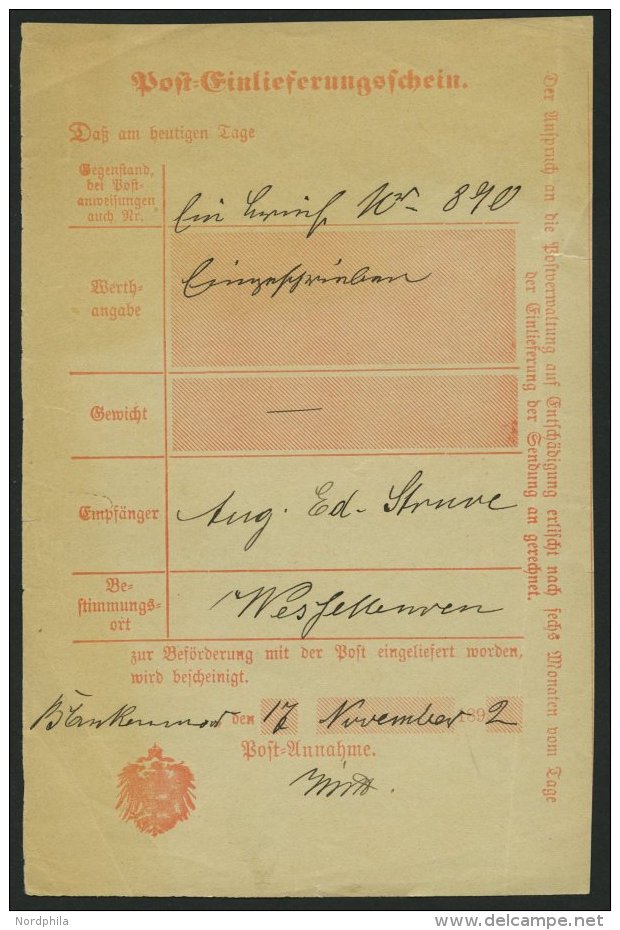 Post-Einlieferungsschein.
Daß am heutigen Tage
Gegenstand,
bei Post-
anweisungen
auch Nr.
Ein Brief No 890
Werth-
angabe
Eingeschrieben
Gewicht
—
Empfänger
Aug. Ed. Struve
Be-
stimmungs-
ort
Wesselburen
zur Beförderung mit der Post eingeliefert worden,
wird bescheinigt.
den 17 November 1892
Post-Annahme.
Der Anspruch an die Postverwaltung auf Entschädigung erlischt nach sechs Monaten vom Tage
der Einlieferung der Sendung an gerechnet.
Nordphila
delcampe.net